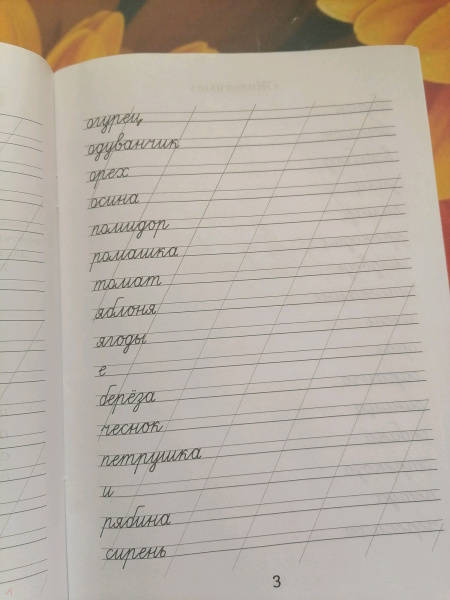 огурец
одуванчик
орех
осина
помидор
ромашка
томат
яблоня
ягоды
е
берёза
чеснок
петрушка
и
рябина
сирень
3